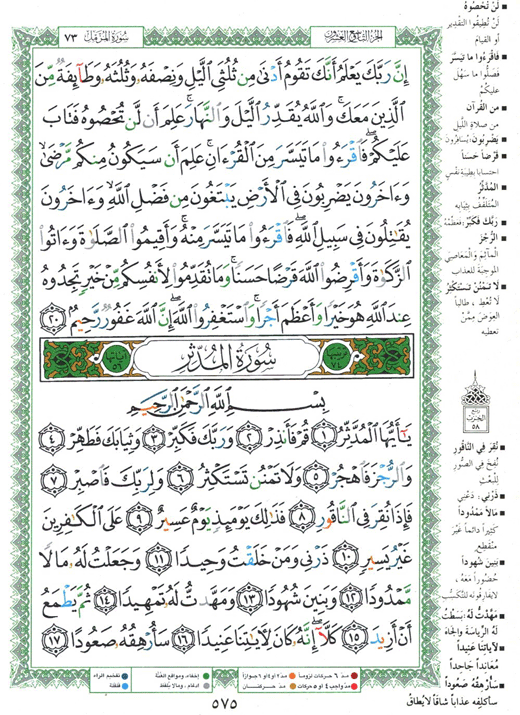 سُورَةُ المُزَّمِّل ٧٣
الجزء التاسع والعشرون
إِنَّ رَبَّكَ يَعْلَمُ أَنَّكَ تَقُومُ أَدْنَىٰ مِن ثُلُثَيِ ٱلَّيْلِ وَنِصْفَهُۥ وَثُلُثَهُۥ وَطَآئِفَةٌ مِّنَ
ٱلَّذِينَ مَعَكَ ۚ وَٱللَّهُ يُقَدِّرُ ٱلَّيْلَ وَٱلنَّهَارَ ۚ عَلِمَ أَن لَّن تُحْصُوهُ فَتَابَ
عَلَيْكُمْ ۖ فَٱقْرَءُوا۟ مَا تَيَسَّرَ مِنَ ٱلْقُرْءَانِ ۚ عَلِمَ أَن سَيَكُونُ مِنكُم مَّرْضَىٰ ۙ
وَءَاخَرُونَ يَضْرِبُونَ فِى ٱلْأَرْضِ يَبْتَغُونَ مِن فَضْلِ ٱللَّهِ ۙ وَءَاخَرُونَ
يُقَٰتِلُونَ فِى سَبِيلِ ٱللَّهِ ۖ فَٱقْرَءُوا۟ مَا تَيَسَّرَ مِنْهُ ۚ وَأَقِيمُوا۟ ٱلصَّلَوٰةَ وَءَاتُوا۟
ٱلزَّكَوٰةَ وَأَقْرِضُوا۟ ٱللَّهَ قَرْضًا حَسَنًا ۚ وَمَا تُقَدِّمُوا۟ لِأَنفُسِكُم مِّنْ خَيْرٍ تَجِدُوهُ
عِندَ ٱللَّهِ هُوَ خَيْرًا وَأَعْظَمَ أَجْرًا ۚ وَٱسْتَغْفِرُوا۟ ٱللَّهَ ۖ إِنَّ ٱللَّهَ غَفُورٌ رَّحِيمٌۢ ٢٠
سُورَةُ المُدَّثِّر
آياتها ٥٦
بِسْمِ ٱللَّهِ ٱلرَّحْمَٰنِ ٱلرَّحِيمِ
يَٰٓأَيُّهَا ٱلْمُدَّثِّرُ ١ قُمْ فَأَنذِرْ ٢ وَرَبَّكَ فَكَبِّرْ ٣ وَثِيَابَكَ فَطَهِّرْ ٤
وَٱلرُّجْزَ فَٱهْجُرْ ٥ وَلَا تَمْنُن تَسْتَكْثِرُ ٦ وَلِرَبِّكَ فَٱصْبِرْ ٧
فَإِذَا نُقِرَ فِى ٱلنَّاقُورِ ٨ فَذَٰلِكَ يَوْمَئِذٍ يَوْمٌ عَسِيرٌ ٩ عَلَى ٱلْكَٰفِرِينَ
غَيْرُ يَسِيرٍ ١٠ ذَرْنِى وَمَنْ خَلَقْتُ وَحِيدًا ١١ وَجَعَلْتُ لَهُۥ مَالًا
مَّمْدُودًا ١٢ وَبَنِينَ شُهُودًا ١٣ وَمَهَّدتُّ لَهُۥ تَمْهِيدًا ١٤ ثُمَّ يَطْمَعُ
أَنْ أَزِيدَ ١٥ كَلَّآ ۖ إِنَّهُۥ كَانَ لِءَايَٰتِنَا عَنِيدًا ١٦ سَأُرْهِقُهُۥ صَعُودًا ١٧
لَن تُحْصُوهُ
لن تُطيقوا التقدير
أو القيام
فَاقْرَءُوا ما تيسّر
فصَلّوا ما سَهُل
عليكُم
من القرآن
من صلاةِ اللّيل
يضربون: يُسافرون
قرضاً حسناً
احتسابا بطيبة نفس
المُدَّثّر
المُتَلَفِّفُ بثيابِه
ربّك فَكَبّر: فعظّمهُ
الرُّجْزَ
المآثِمَ والمعاصي
الموجبَة للعذاب
لا تمنُن تستكثر
لا تُعطِ، طالباً
العِوَضَ مِمَّن
تعطيه
ربع
الحزب
٥٨
نُقِرَ في النّاقُور
نُفِخَ في الصُّورِ
للبعث
ذَرْني: دَعْني
مالاً مَمْدُوداً
كثيراً دائماً غَيْرَ
منقطِع
بنين شهُوداً
حُضُوراً معَهُ،
لا يفارقونه للتكسُّب
مَهّدْتُ لَه: بَسَطْتُ
لهُ الرّياسَةَ والجاهَ
لآياتِنا عَنيداً
مُعانِداً جاحداً
سأرهقه صَعُوداً
سأكلفه عذاباً شاقاً لا يُطاقُ
مدّ ٦ حركات لزوماً مدّ ٢ أو ٤ أو ٦ جوازاً إخفاء، ومواقع الغنّة تفخيم الراء
مدّ واجب ٤ أو ٥ حركات مدّ حركتان إدغام، وما لا يلفظ قلقلة
٥٧٥